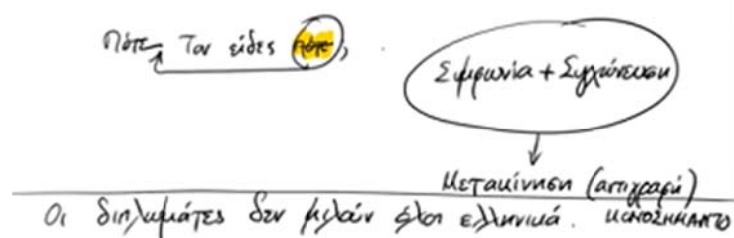 Πότε τον είδες πότε;
Συμφωνία + Συγχώνευση
Μετακίνηση (αντιγραφή)
Οι διπλωμάτες δεν μιλούν όλοι ελληνικά. ΜΟΝΟΣΗΜΑΝΤΟ